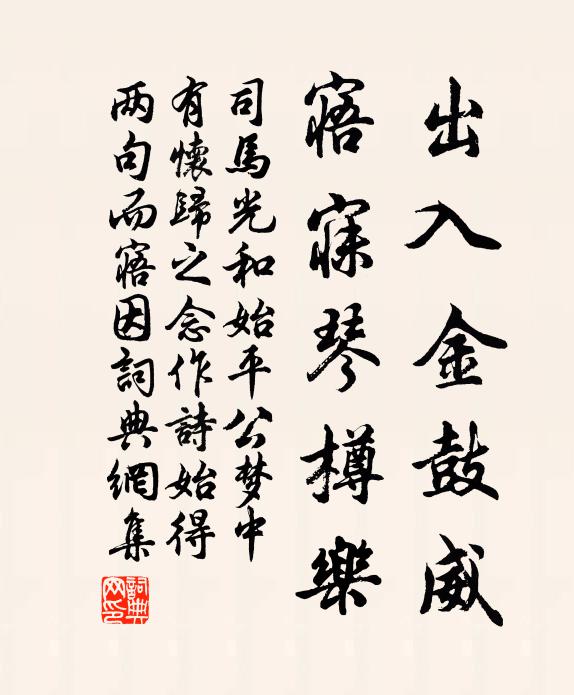 出入金鼓威
寤寐琴樽樂
司馬光和始平公梦中
有懷歸之念作詩始得
两句而寤因詞典網集
詞典網印